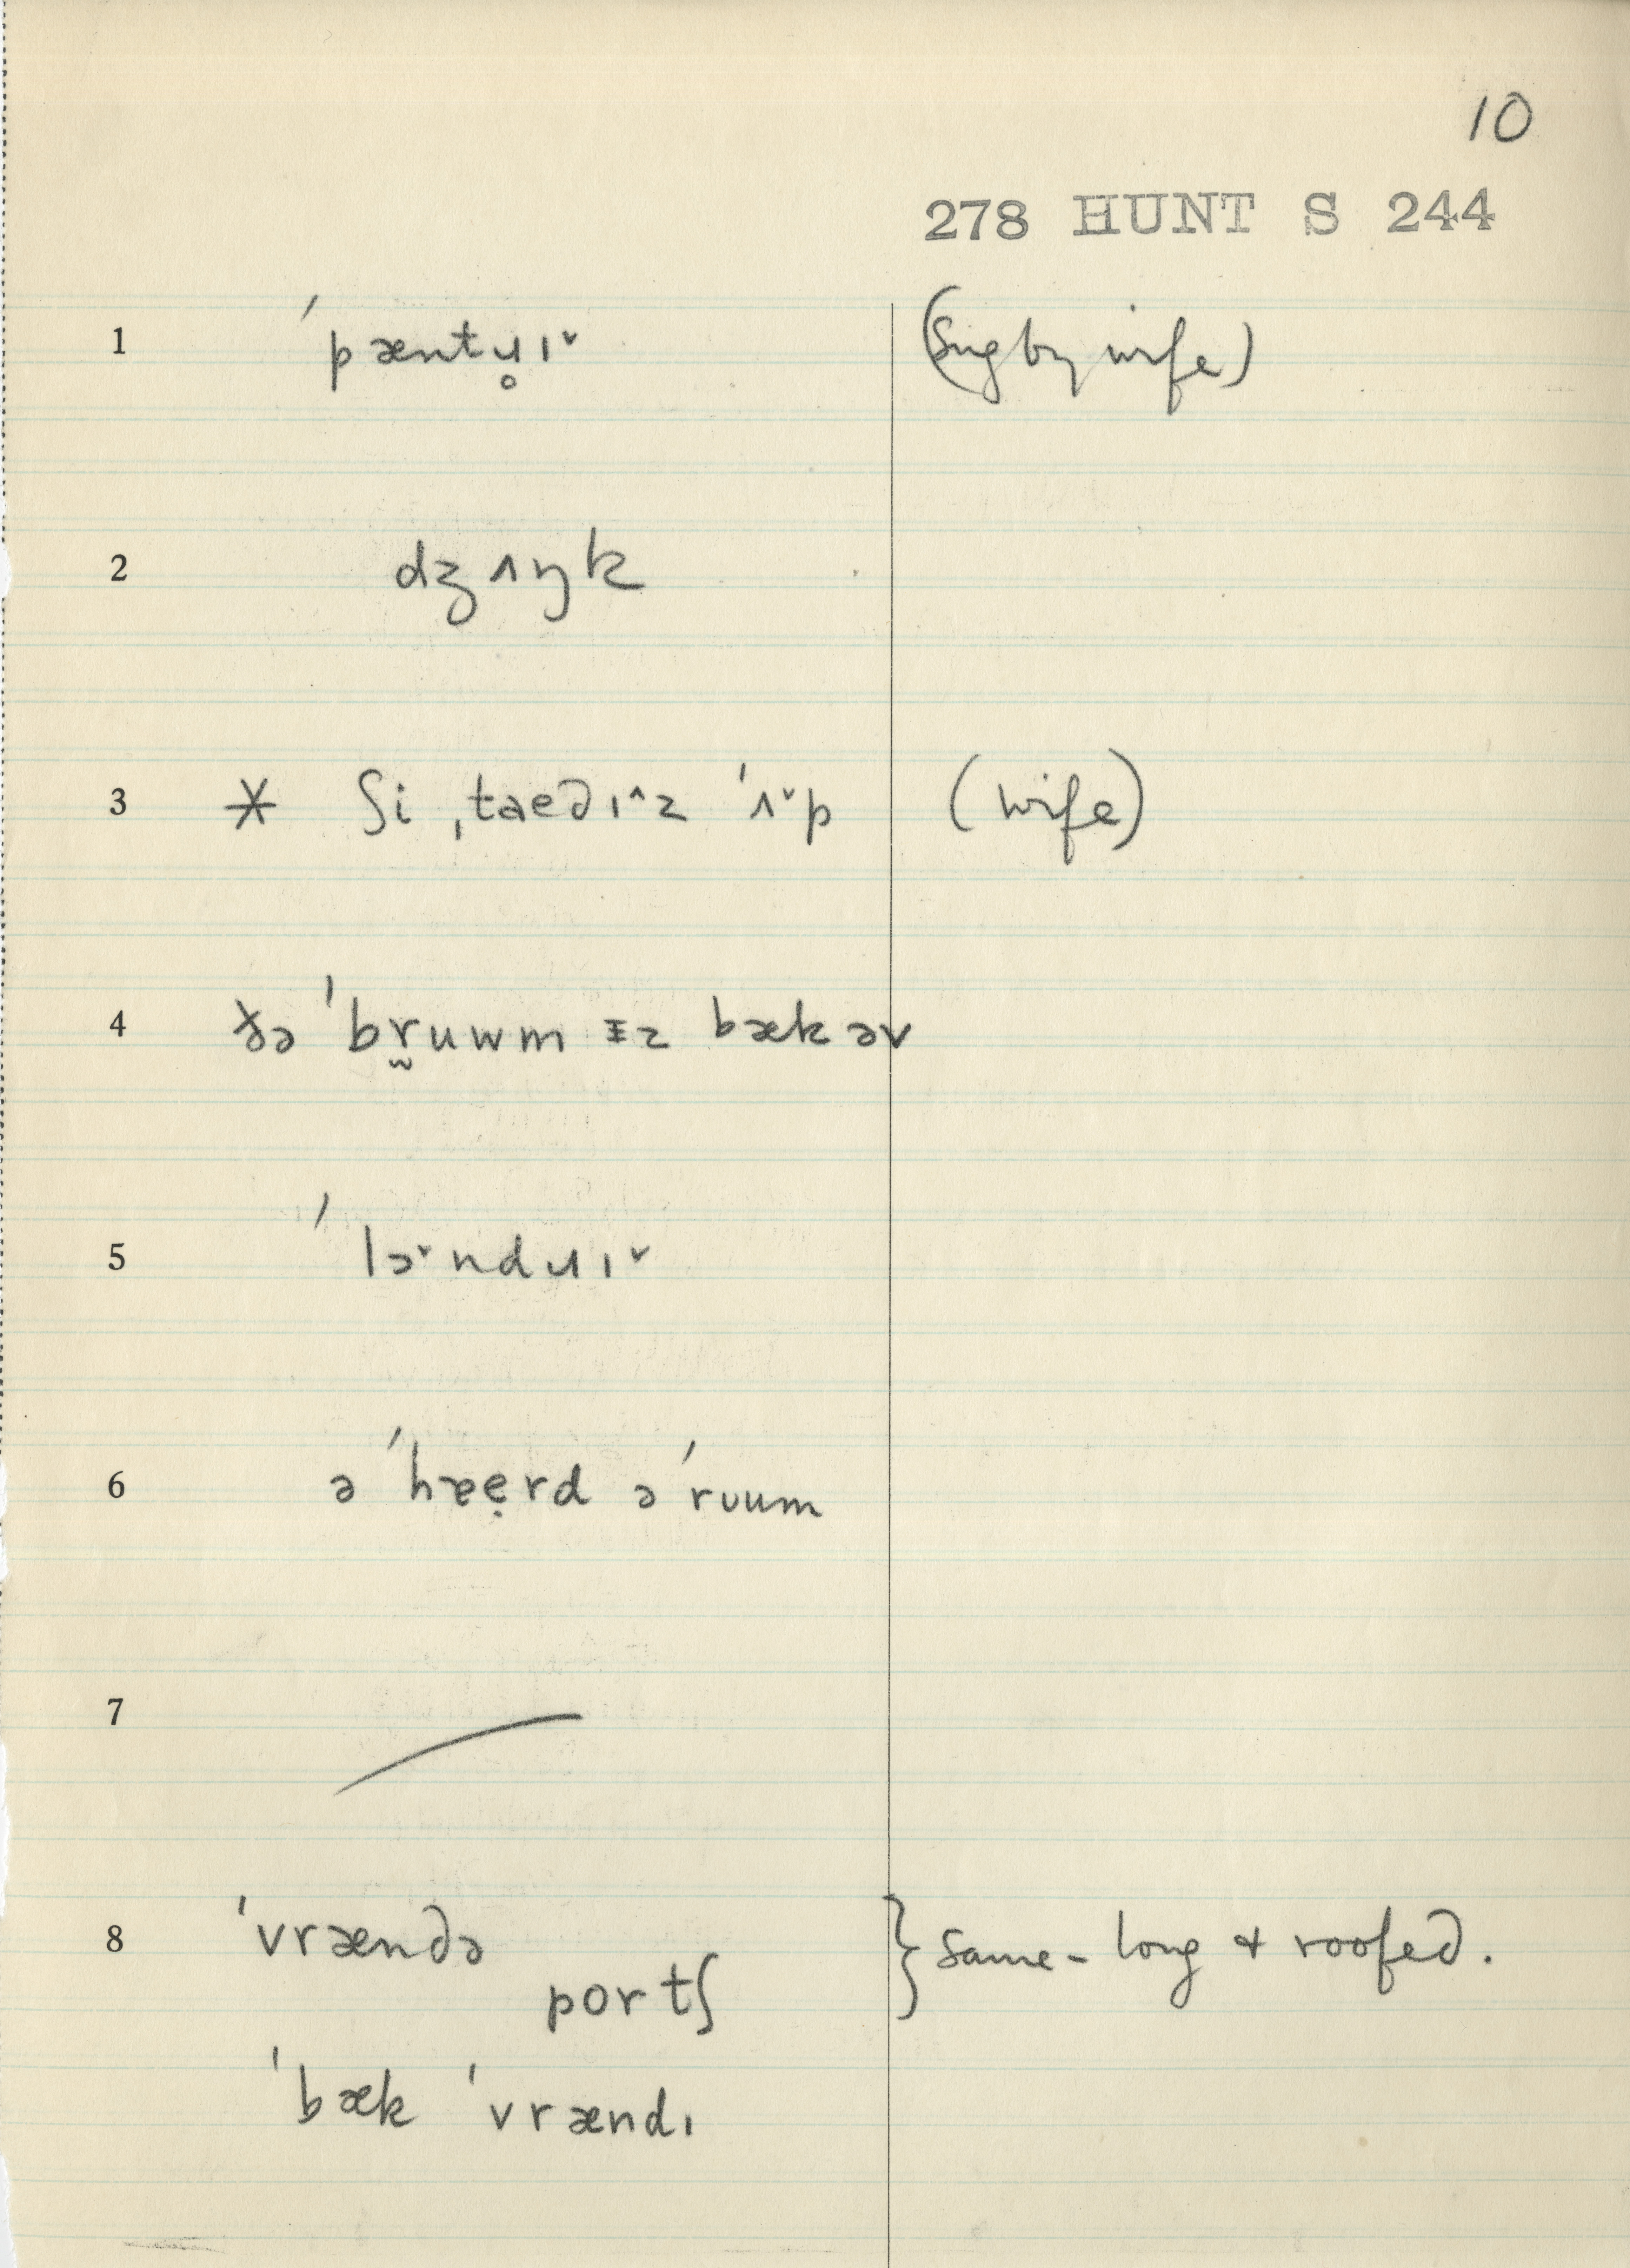 10
278 HUNT S 244
1 ˈpæntɹ̥ɪ˅ (Sug by wife)
2 dʒʌŋk
3 * ʃi ˌtaedɪ^z ˈʌ˅p (wife)
4 ðə ˈbr̰uwm ᵻz bæk əv
5 ˈlɔ˅ndɹɪ˅
6 ə ˈhɐẹrd ə ˈrʊum
7
8 ˈvrændə } same - long & roofed.
portʃ
ˈbæk ˈvrændɪ